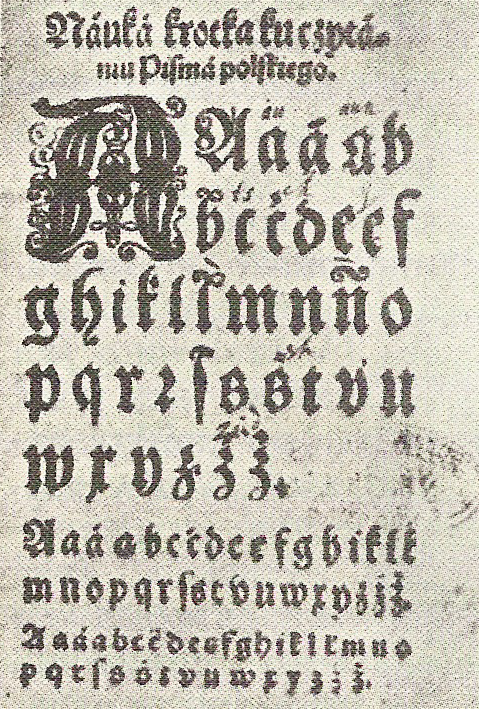 Náuká krotka ku czytá-
niu Piſmá polſkiego.
A a á ą b
b́ c ć d e ę f
g h i k l l̃ m n ñ o
p q r ꝛ ſ s ś t v u
w x y z ź ż.
A a á ą b c ć d e ę f g h i k l ł
m n o p q r ſ s t v u w x y z ź ż.
A a á ą b c ć d e ę f g h i k l ł m n o
p q r ſ s ś t v u w x y z ź ż.